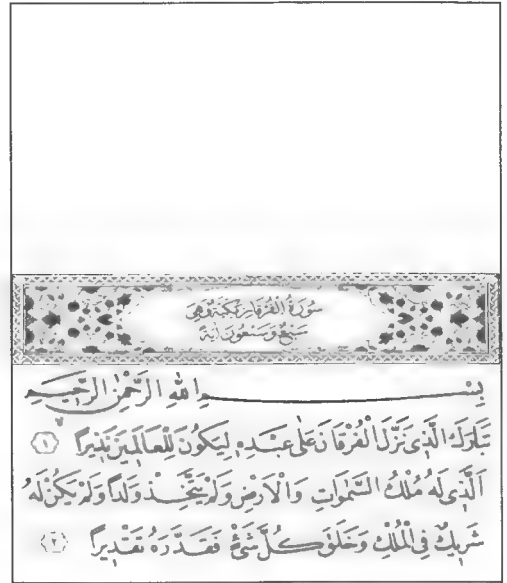 سُورَةُ الْفُرْقَانِ مَكِّيَّةٌ وَهِيَ
سَبْعٌ وَسَبْعُونَ اٰيَةً
بِسْــــــــمِ اللّٰهِ الرَّحْمٰنِ الرَّحٖيمِ
تَبَارَكَ الَّذٖى نَزَّلَ الْفُرْقَانَ عَلٰى عَبْدِهٖ لِيَكُونَ لِلْعَالَمٖينَ نَذٖيرًاۙ ﴿١﴾
اَلَّذٖى لَهُ مُلْكُ السَّمٰوَاتِ وَالْاَرْضِ وَلَمْ يَتَّخِذْ وَلَدًا وَلَمْ يَكُنْ لَهُ
شَرٖيكٌ فِى الْمُلْكِ وَخَلَقَ كُلَّ شَیْءٍ فَقَدَّرَهُ تَقْدٖيرًا ﴿٢﴾